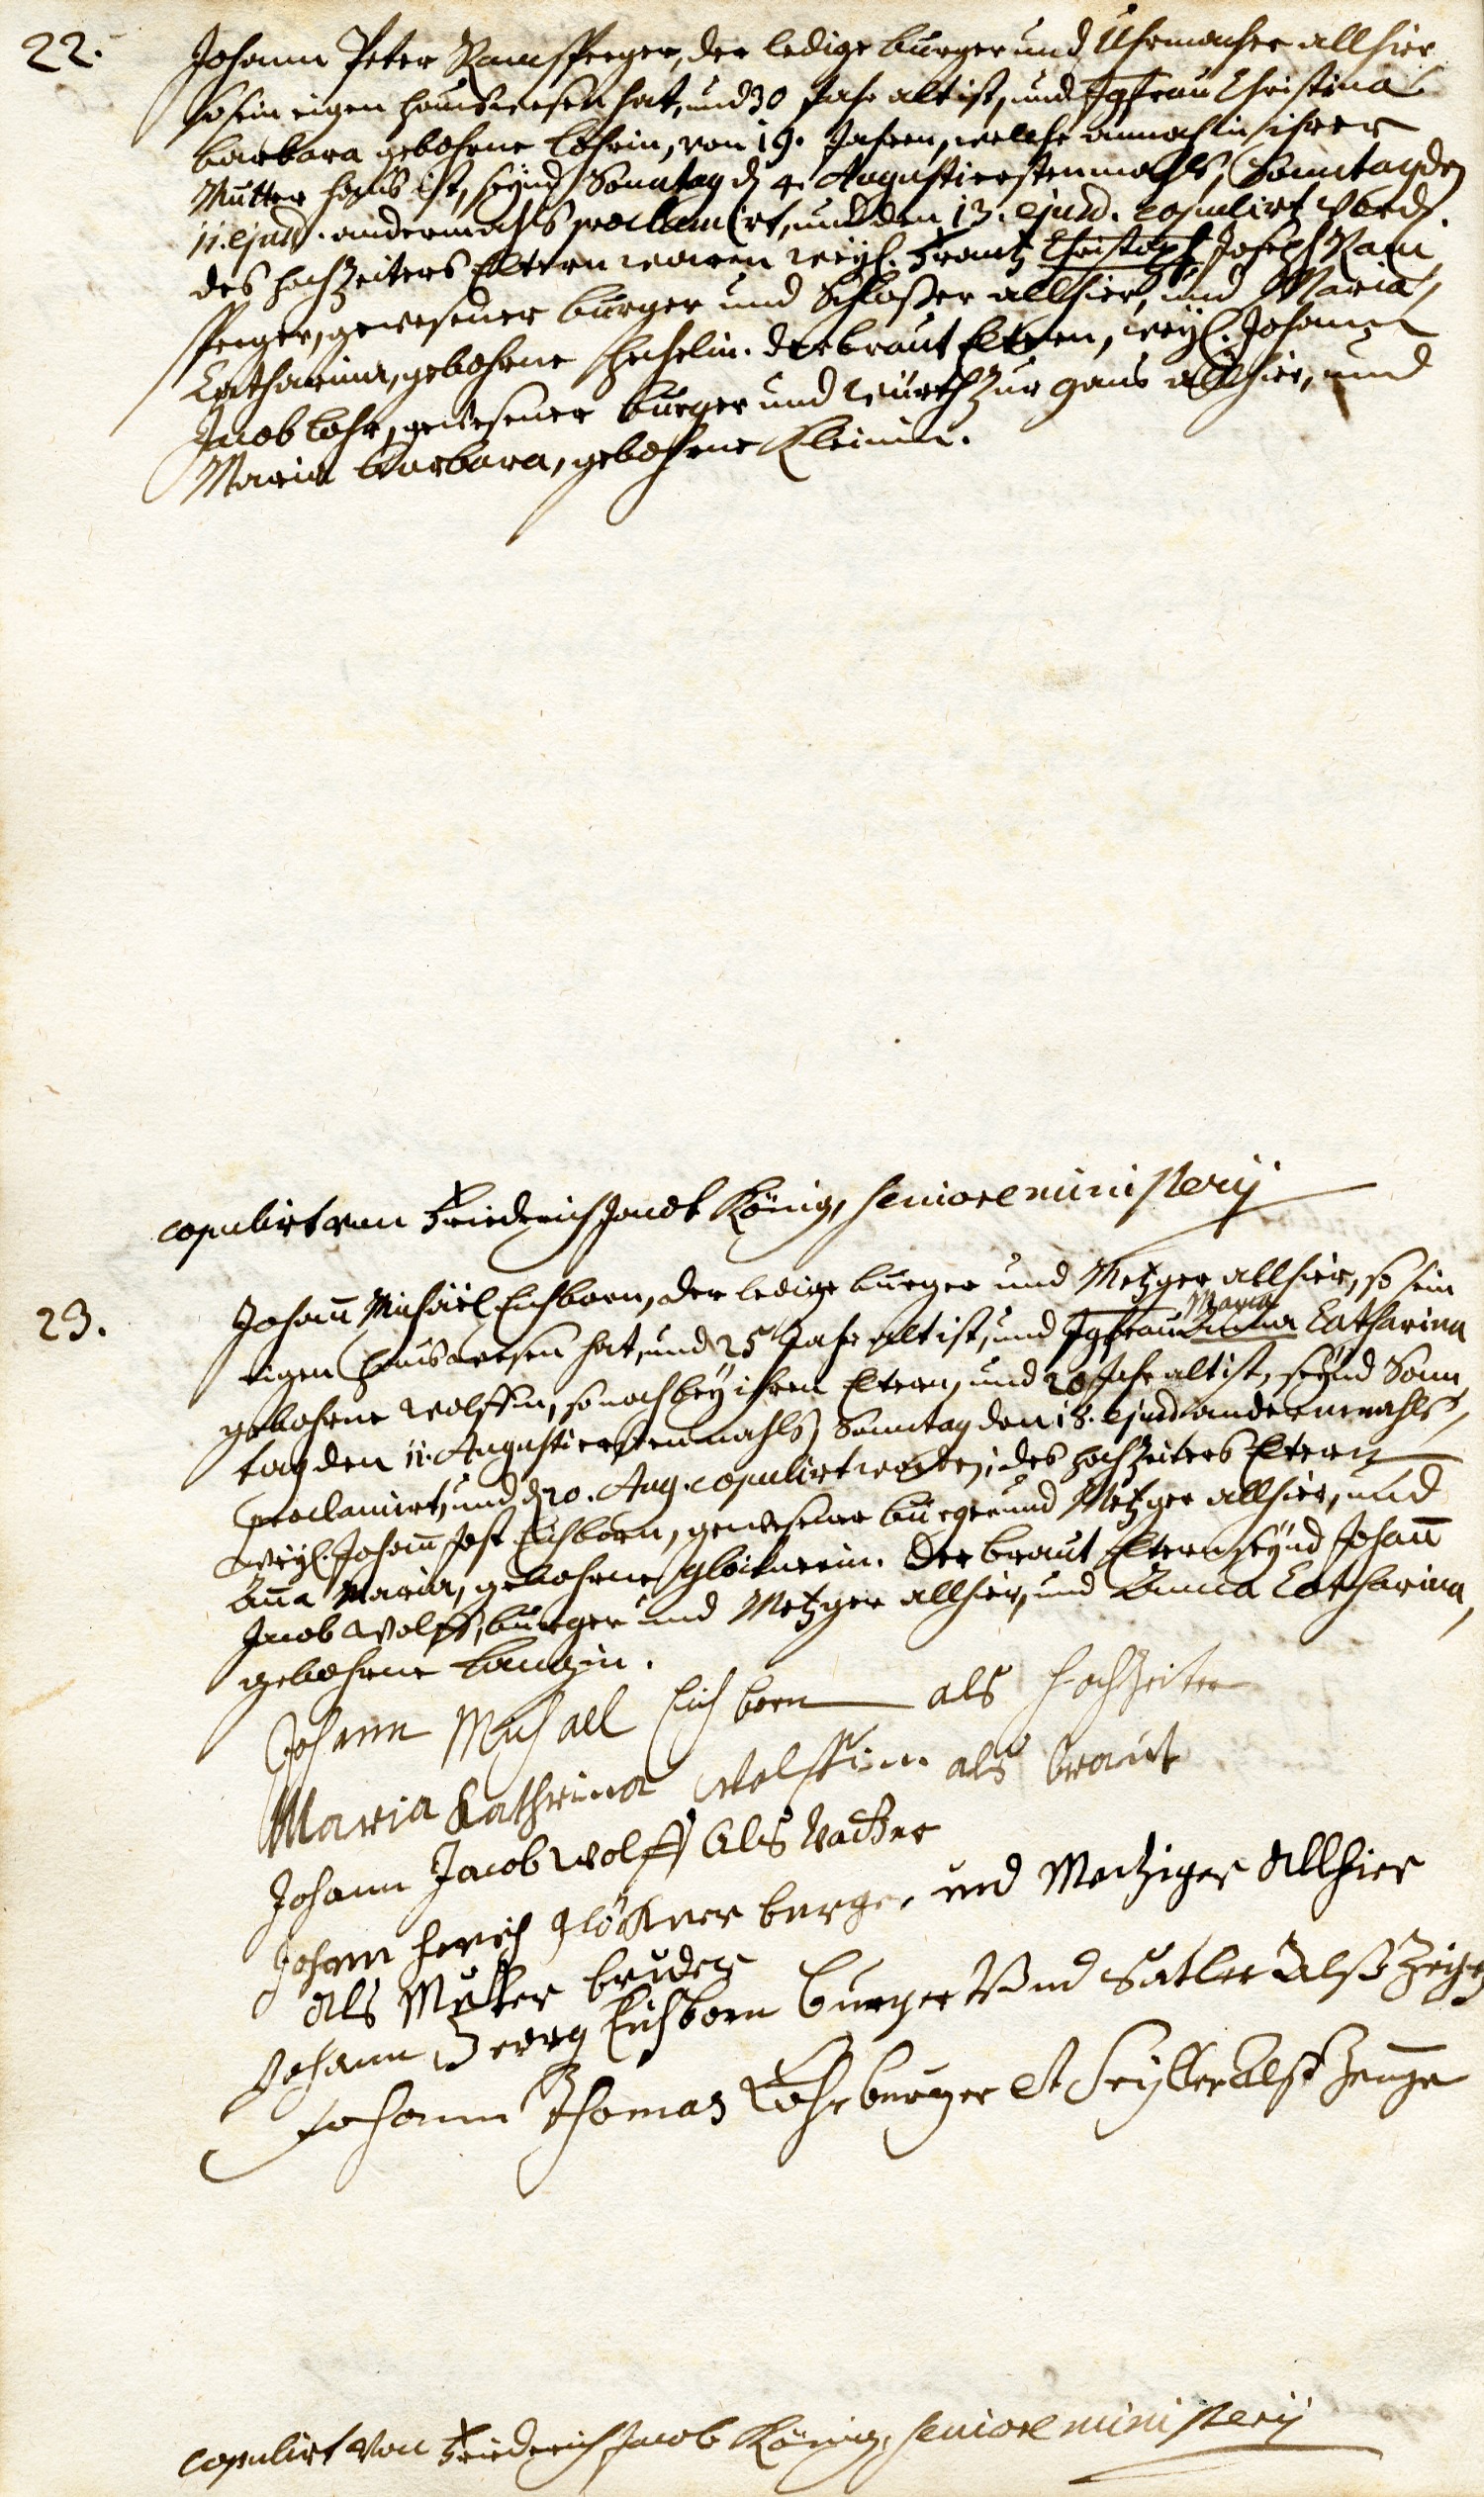 22.
Johann Peter Ramsperger, der ledige burger und Uhrmacher allhier
so sein eigen hauswesen hat, und 30 Jahr alt ist, und Jgfrau Christina
barbara gebohrne Lohrin, von 19. Jahren, welche annoch in ihrer
Mutter haus ist, seynd Sonntag d. 4. Augusti erstenmahls, Sonntag den
11. ejusd. andermahls proclamirt, und den 13. ejusd. copulirt word.
des hochzeiters Eltern waren weyl. Frantz Christoph Joseph Ram
sperger, gewesener burger und Schloßer allhier, und Maria
Catharina, gebohrne. der braut Eltern, weyl. Johann
Jacob Lohr, gewesener burger und Würth zur gans allhier, und
Maria barbara, gebohrne Kleinin.
copulirt von Friedrich Jacob König, seniore ministerij
23.
Johañ Michael Eichborn, der ledige burger und Metzger allhier, so sein
eigen hauswesen hat, und 25 Jahr alt ist, und Jgfrau Anna Catharina
Maria
gebohrne Wolffin, so noch bey ihren Eltern, und 20 Jahr alt ist, seynd Sonn
tag den 11. Augusti erstenmahls, Sonntag den 18. ejusd. andermahls
proclamirt, und d. 20. Aug. copulirt worden; des hochzeiters Eltern
weyl. Johañ Jost Eichborn, gewesener burger und Metzger allhier, und
Aña Maria, gebohrne Glöcknerin. Der braut Eltern seynd Johañ
Jacob Wolff, burger und Metzger allhier, und Anna Catharina,
gebohrne Langin.
Johann Michael Eichborn als hochzeiter
Maria Kathrina Wolffin als braut
Johann Jacob Wolff als Vatter
Johann Henrich Glöckner burger und Metziger allhier
als Mutter bruder
Johann Georg Eichborn burger Und Satler Alß Zeig
Johann Thomas Lohr burger et Seyller alß Zeuge
copulirt von Friedrich Jacob König, seniore ministerij